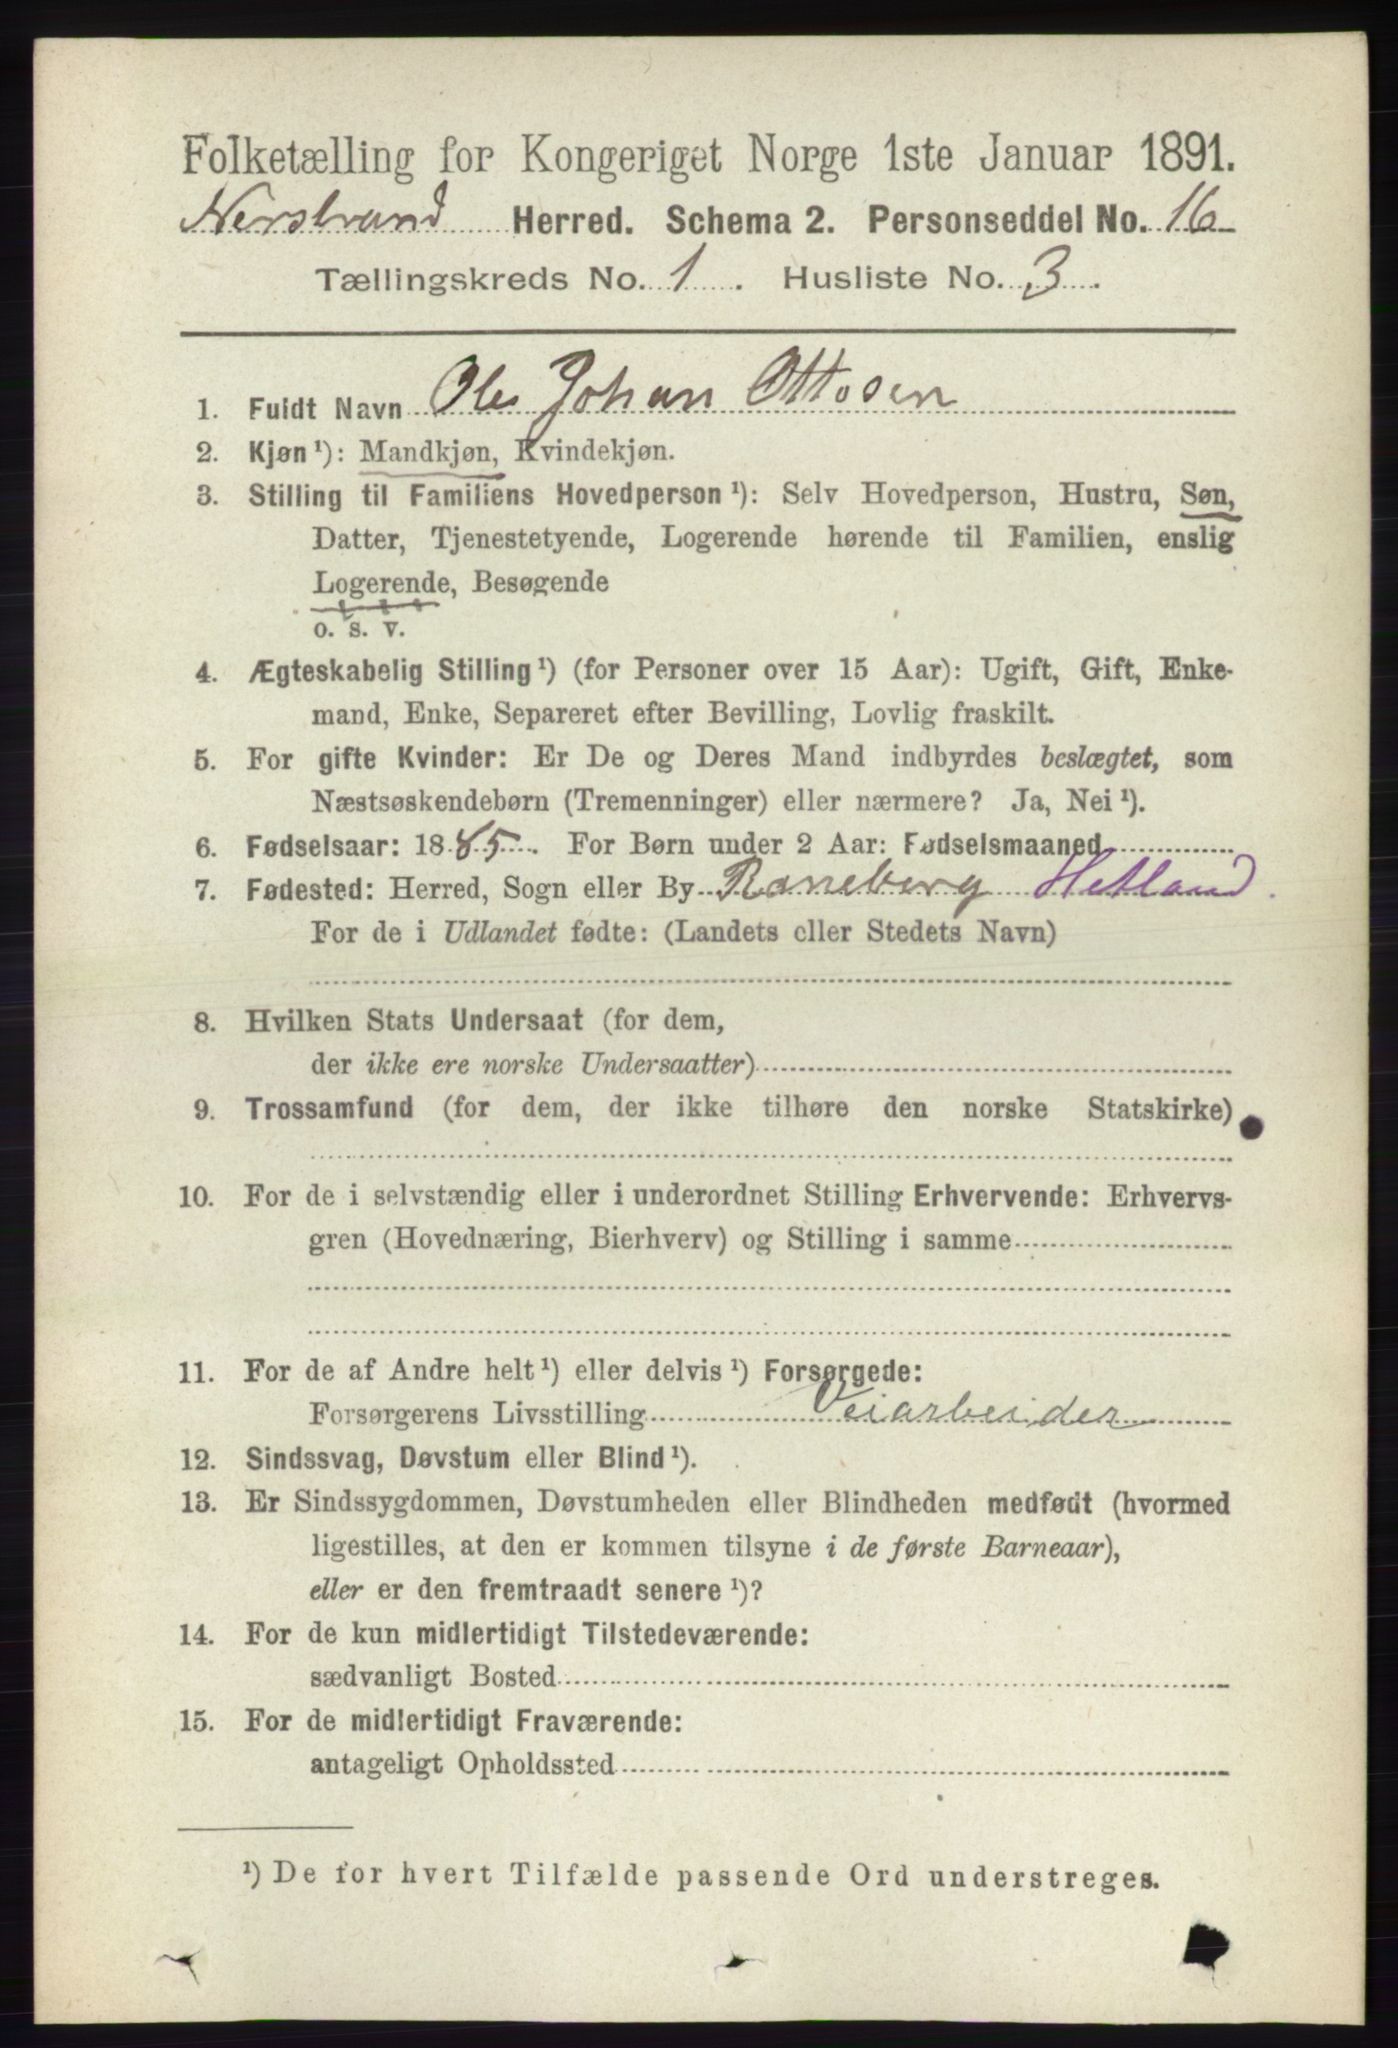 Folketælling for Kongeriget Norge 1ste Januar 1891.
Nerstrand Herred. Schema 2. Personseddel No. 16
Tællingskreds No. 1. Husliste No. 3.
1. Fuldt Navn Ole Johan Ottosen
2. Kjøn¹): Mandkjøn, Kvindekjøn.
3. Stilling til Familiens Hovedperson¹): Selv Hovedperson, Hustru, Søn,
Datter, Tjenestetyende, Logerende hørende til Familien, enslig
Logerende, Besøgende
o. s. v.
4. Ægteskabelig Stilling¹) (for Personer over 15 Aar): Ugift, Gift, Enke-
mand, Enke, Separeret efter Bevilling, Lovlig fraskilt.
5. For gifte Kvinder: Er De og Deres Mand indbyrdes beslægtet, som
Næstsøskendebørn (Tremenninger) eller nærmere? Ja, Nei¹).
6. Fødselsaar: 1885. For Børn under 2 Aar: Fødselsmaaned
7. Fødested: Herred, Sogn eller By Raneberg Hetland
For de i Udlandet fødte: (Landets eller Stedets Navn)
8. Hvilken Stats Undersaat (for dem,
der ikke ere norske Undersaatter)
9. Trossamfund (for dem, der ikke tilhøre den norske Statskirke)
10. For de i selvstændig eller i underordnet Stilling Erhvervende: Erhvervs-
gren (Hovednæring, Bierhverv) og Stilling i samme
11. For de af Andre helt¹) eller delvis¹) Forsørgede:
Forsørgerens Livsstilling Veiarbeider
12. Sindssvag, Døvstum eller Blind¹).
13. Er Sindssygdommen, Døvstumheden eller Blindheden medfødt (hvormed
ligestilles, at den er kommen tilsyne i de første Barneaar),
eller er den fremtraadt senere¹)?
14. For de kun midlertidigt Tilstedeværende:
sædvanligt Bosted
15. For de midlertidigt Fraværende:
antageligt Opholdssted
¹) De for hvert Tilfælde passende Ord understreges.